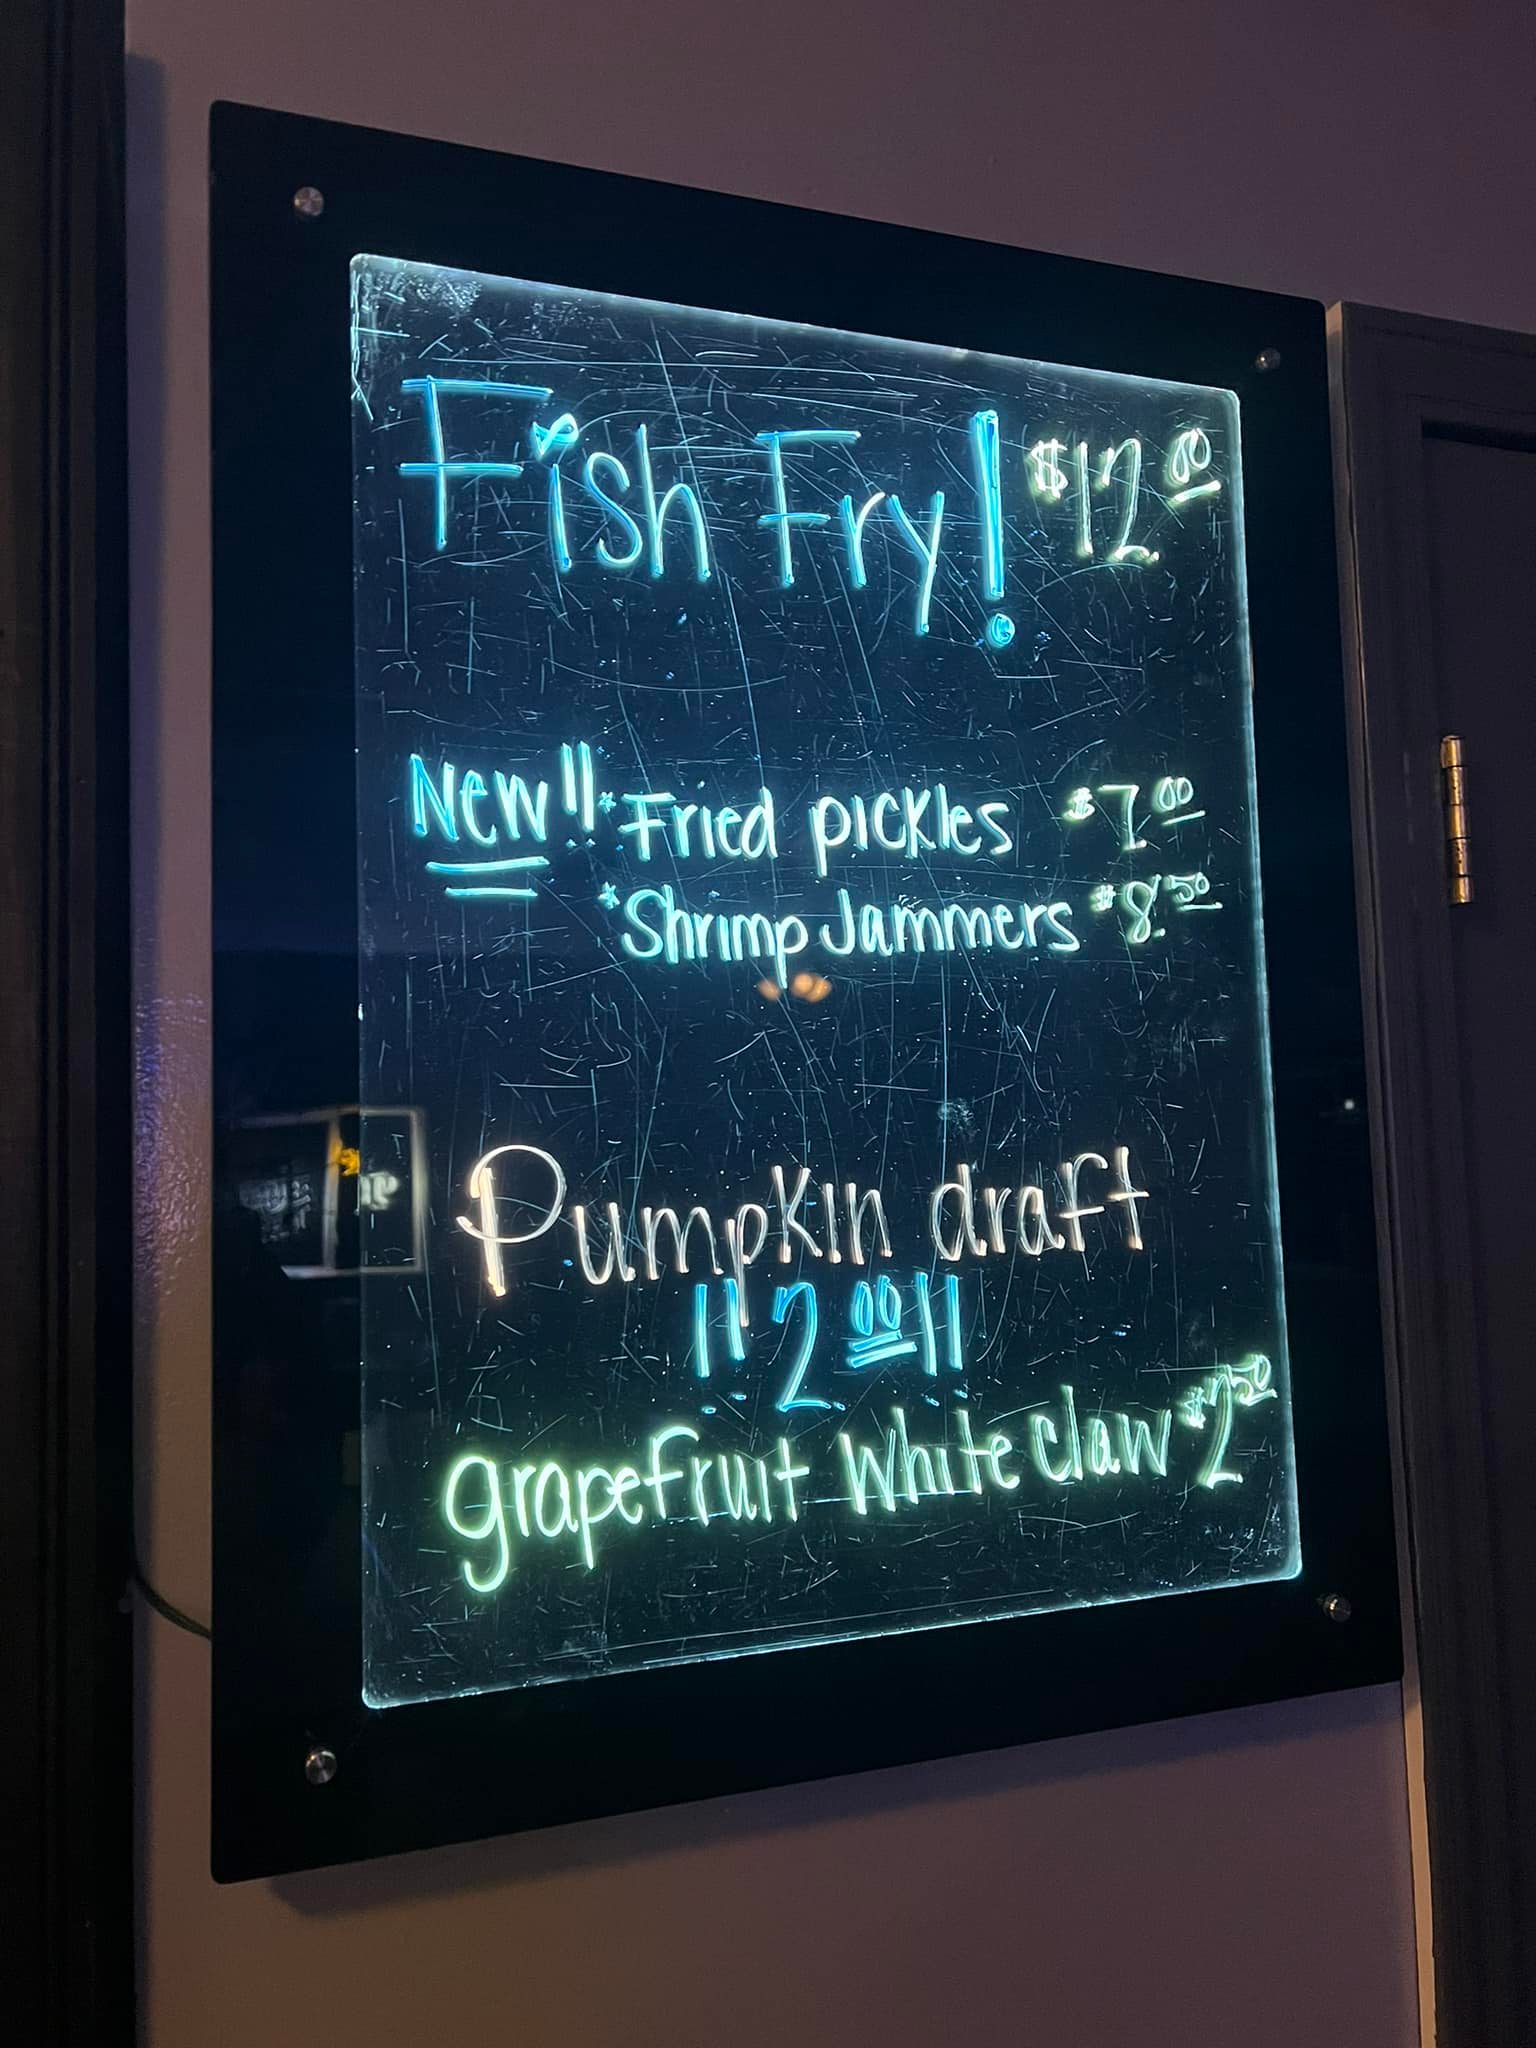 Fish Fry! $12.00
New!! *Fried pickles $7.00
*Shrimp Jammers $8.50
Pumpkin draft
!!2.00!!
grapefruit White claw $2.50